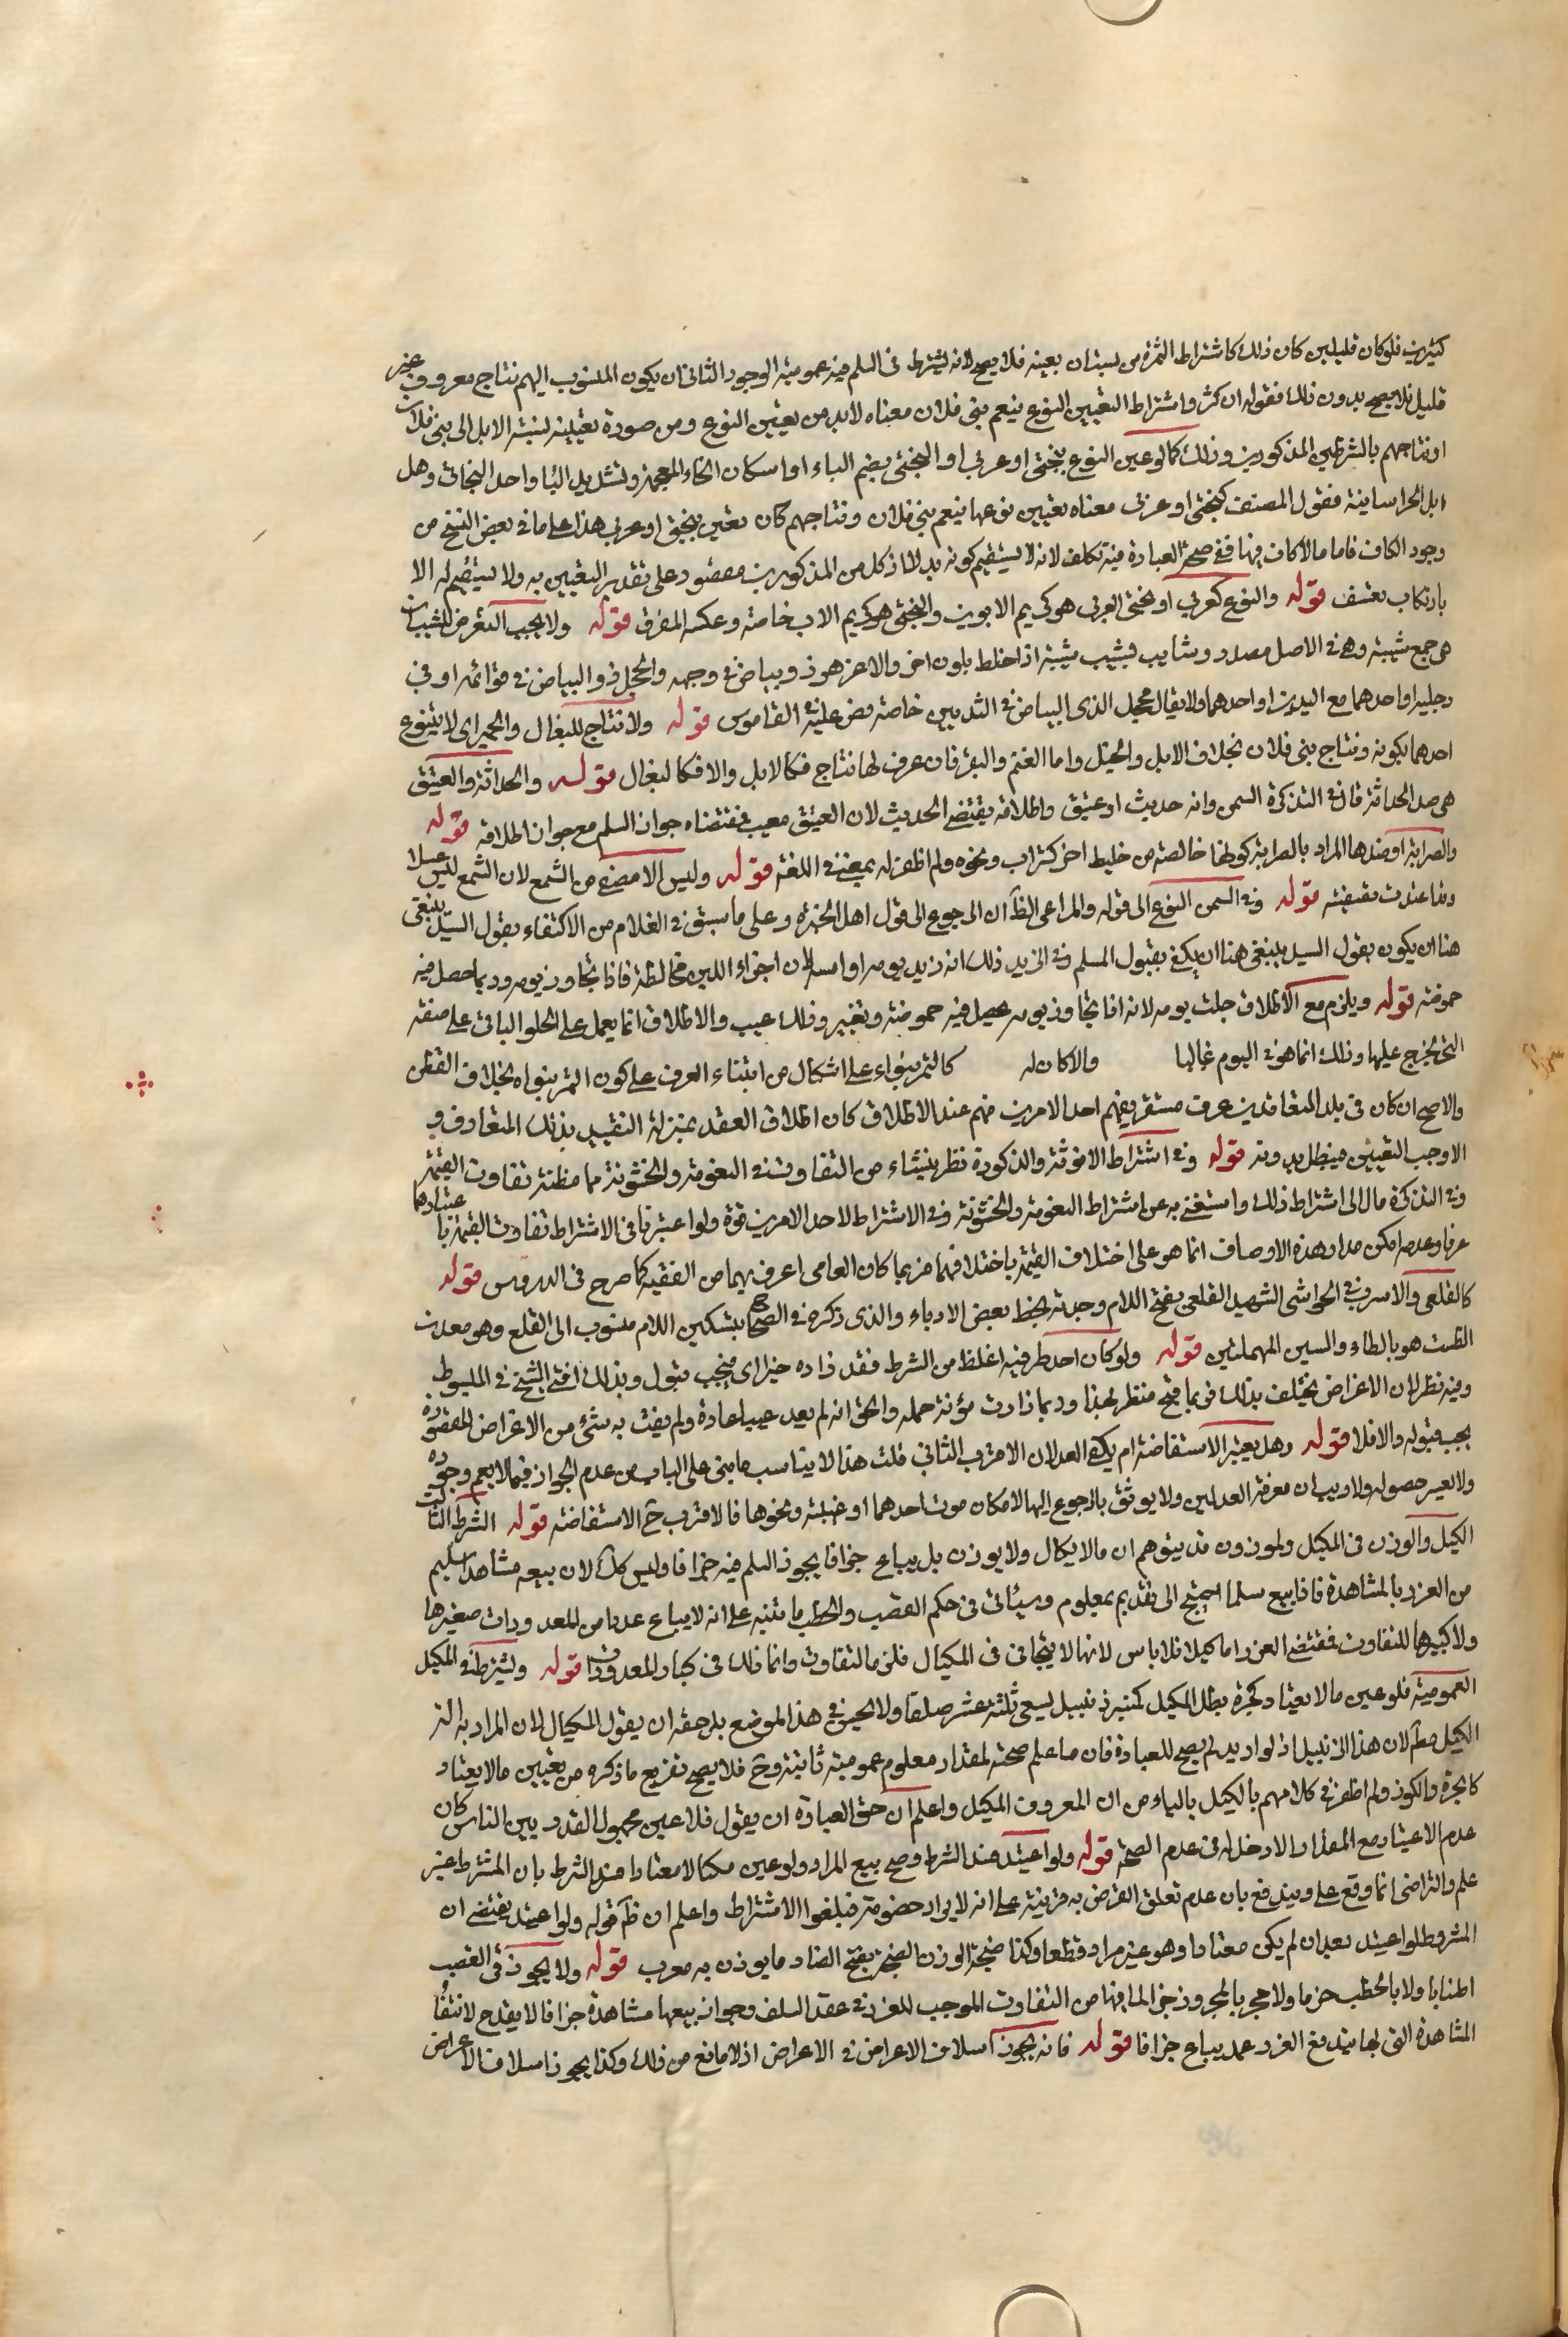 كثيرين فلو كان قليلين كان ذلك كاشتراط الثمرة من بستان بعينه فلا يصح لانه يشترط فى السلم فيه عمومية الوجود الثانى ان يكون المنسوب اليهم نتاج معروف غير
قليل فلا يصح بدون ذلك فقوله ان كثر واشتراط التعيين النوع بنعم بنى فلان معناه لابد من تعيين النوع ومن صورة تعيينه نسبة الابل الى بنى فلان
او نتاجهم بالشرطين المذكورين وذلك كما لو عين النوع ببختى او عربى او البختى بضم الباء او اسكان الخاء المعجمة وتشديد الياء واحد البخاتى وهل
ابل الخراسانية فقول المصنف كبختى او عربى معناه تعيين نوعها بنعم بنى فلان ونتاجهم كان تعين ببختى او عربى هذا على ما فى بعض النسخ من
وجود الكاف فاما ما لا كاف فيها ففى صحة العبارة فيه تكلف لانه لا يستقيم كونه بدلا اذ كل من المذكورين مقصود على تقدير التعيين به ولا يستقيم له الا
بارتكاب تعسف قوله والنوع كعربى او بختى العربى هو كريم الابوين والبختى هو كريم الاب خاصة وعكسه المقرف قوله ولا يجب التعرض للشيات
هى جمع شية وهى فى الاصل مصدر وشاه يشيب شية اذا خلط بلون اخر والاغر هو ذو بياض فى وجهه والمحجل ذو البياض فى قوائمه او فى
رجليه او احدهما مع اليدين او احدهما ولا يقال محجل الذى البياض فى اليدين خاصة نص عليه فى القاموس قوله ولا نتاج للبغال والحمير اى لا يتنوع
احدهما بكونه ونتاج بنى فلان بخلاف الابل والخيل واما الغنم والبقر فان عرف لها نتاج فكالابل والا فكالبغال قوله والحداثة والعتيق
هى ضد الحداثة قال فى التذكرة السمن وانه حديث او عتيق واطلاقه يقتضى الحديث لان العتيق معيب فمقتضاه جواز السلم مع جواز اطلاقه قوله
والصرابة او ضدها المراد بالصرابة كونها خالصة من خليط اخر كتراب ونحوه ولم اظفر له بمعنى فى اللغة قوله وليس الا مصفى من الشمع لان الشمع ليس عسلا
وقد اعتدت بقيمته قوله وفى السمن النوع الى قوله والمراعى الظ ان الرجوع الى قول اهل الخبرة وعلى ما سبق فى الغلام من الاكتفاء بقول السيد ينبغى
هنا ان يكون بقول السيد ينبغى هنا ان يكفى بقبول المسلم وفى الزبد ذلك انه زبد يومه او امسه لان اجزاء اللبن مخالطة فاذا تجاوز يومه وربما حصل فيه
حموضة قوله ويلزم مع الاطلاق حلب يومه لانه اذا تجاوز يومه يحصل فيه حموضة وتغيير وذلك عيب والاطلاق انما يحمل على الحلو الباقى على صفته
التى يخرج عليها وذلك انما هو فى اليوم غالبا والا كان له كالتمر بنواه على اشكال من ابتناء العرف على كون التمر بنواه بخلاف القطن
والاصح ان كان فى بلد المتعاقدين عرف مستقر يفهم احد الامرين منهم عند الاطلاق كان اطلاق العقد بمنزلة التقييد بذلك المتعارف و
الا وجب التعيين فيبطل بدونه قوله وفى اشتراط الانوثة والذكورة نظر ينشاء من التفاوت فى النعومة والخشونة مما مظنة تفاوت القيمة
وفى التذكرة مال الى اشتراط ذلك واستغنى به عن اشتراط النعومة والخشونة وفى الاشتراط لاحد الامرين قوة ولو اعتبرنا فى الاشتراط تفاوت القيمة باعتبارهما
عرفا وعدمه امكن مدار هذه الاوصاف انما هو على اختلاف القيمة باختلافهما فربما كان العامى اعرف بهما من الفقيه كما صرح فى الدروس قوله
كالقلعى والاسرب فى الحواشى الشهيد القلعى بفتح اللام وجدته بخط بعض الادباء والذى ذكره فى الصحاح بتسكين اللام منسوب الى القلع وهو معدن
الطست هو بالطاء والسين المهملتين قوله ولو كان احد طرفيه اغلظ من الشرط فقد زاده خيرا اى فيجب قبول وبذلك افتى الشيخ فى المبسوط
وفيه نظر لان الاغراض تختلف بذلك فربما قبح منظر بهذا وربما زادت مؤنة حمله والحق انه لم يعد عيبا عادة ولم يفت به شئ من الاغراض المقصودة
يجب قبوله والا فلا قوله وهل يعتبر الاستفاضة ام يكفى العدلان الاقرب الثانى قلت هذا لا يناسب ما بنى على الباب من عدم الجواز فيما لا يعم وجوده
ولا يعسر حصوله ولا ريب ان معرفة العدلين ولا يوثق بالرجوع اليها لامكان موت احدهما او غيبته ونحوها فالاقرب ح الاستفاضة قوله الشرط الثالث
الكيل والوزن فى المكيل والموزون قد يتوهم ان ما لا يكال ولا يوزن بل يباع جزافا يجوز السلم فيه جزافا وليس كك لان بيعه مشاهدا سليم
من الغرر بالمشاهدة فاذا بيع سلما احتيج الى تقديم بمعلوم وسيأتى فى حكم القصب والحطب ما ينبه على انه لا يباع عددا من المعدودات صغيرها
ولا كبيرها للتفاوت فمقتضى الغرر اما كيلا فلا باس لانها لا يتجافى فى المكيال فلزم التفاوت وانما ذلك فى كبار المعدودات قوله ويشترط فى المكيل
العمومية فلو عين ما لا يعتاد كجرة بطل المكيل كمنبر زنبيل يسعى ثلثة عشر صاعا ولا يحسن فى هذا الموضع بل حقه ان يقول المكيال لان المراد به الة
الكيل مط لان هذا الزنبيل اذ لو اريد لم يصح للعبارة فان ما علم صحته لمقدار معلوم عمومية ثابتة وح فلا يصح تفريع ما ذكره من تعيين ما لا يعتاد
كالجرة والكوز ولم اظفر فى كلامهم بالكيل بالياء من ان المعروف المكيل واعلم ان حق العبارة ان يقول فلا عين مجهول القدر بين الناس كان
عدم الاعتياد مع المقدار لا دخل له فى عدم الصحة قوله ولو اعتيد فسد الشرط وصح بيع المراد ولو عين مكيالا معتادا فسد الشرط بان المشترط غير
علم والتراضى انما وقع على ويندفع بان عدم تعلق الغرض به قرينة على انه لا يراد خصومته فيلغوا الاشتراط واعلم ان ظ قوله ولو اعتيد يقتضى ان
المشروط لو اعتيد بعد ان لم يكن معتادا وهو غير مراد قطعا وكذا صنجة الوزن الصنجة بفتح الصاد ما يوزن به معرب قوله ولا يجوز فى القصب
اطنانا ولا بالحطب حزما ولا مجز بالمجزوز جزا لما فيها من التفاوت الموجب للغرر فى عقد السلف وجواز بيعها مشاهدة جزافا لا يقدح لانتفأ
المشاهدة التى لها يندفع الغرر عمد يباع جزافا قوله فانه يجوز اسلاف الاعراض فى الاعراض اذ لا مانع من ذلك وكذا يجوز اسلاف الاعراض